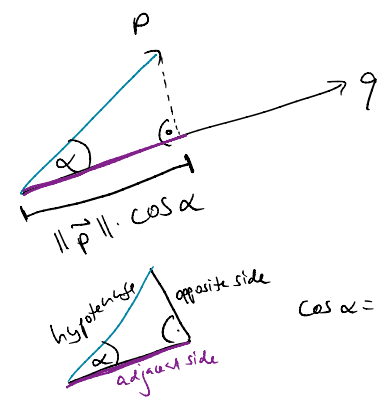 p
q
α
‖p⃗‖ · cos α
hypotenuse
opposite side
α
adjacent side
cos α =